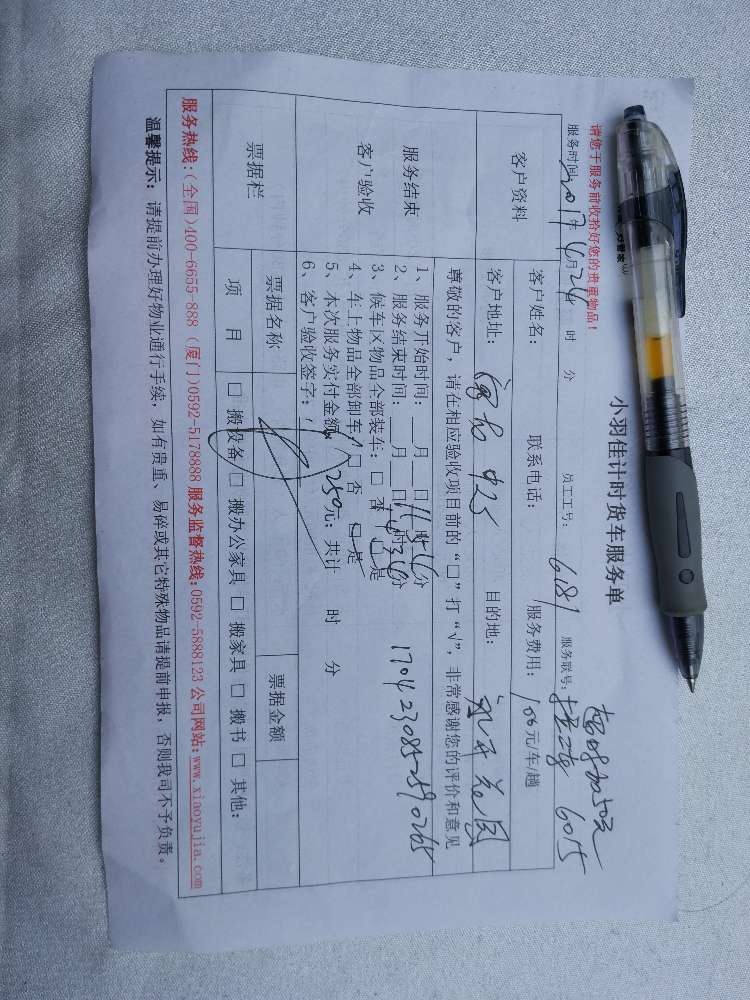 小羽佳计时货车服务单
请您于服务前收拾好您的贵重物品！
超时加50元
服务时间：2017年4月24日 时 分 员工工号：6181 服务联号： 6015
客户资料
客户姓名： 联系电话： 服务费用：100元/车/趟
客户地址： 925 目的地： 花园
尊敬的客户，请在相应验收项目前的“□”打“√”，非常感谢您的评价和意见
服务结束
客户验收
1、服务开始时间：__月__日11时16分
2、服务结束时间：__月__日14时36分
1704230852590265
3、候车区物品全部装车：□ 否 □ 是
4、车上物品全部卸车：□ 否 □ 是
5、本次服务实付金额：250元；共计 时 分
6、客户验收签字：
票据栏
票据名称 票据金额
项 目 □ 搬设备 □ 搬办公家具 □ 搬家具 □ 搬书 □ 其他：
服务热线：(全国)400-6655-888 (厦门)0592-5178888 服务监督热线:0592-5888123 公司网站:www.xiaoyujia.com
温馨提示：请提前办理好物业通行手续，如有贵重、易碎或其它特殊物品请提前申报，否则我司不予负责。